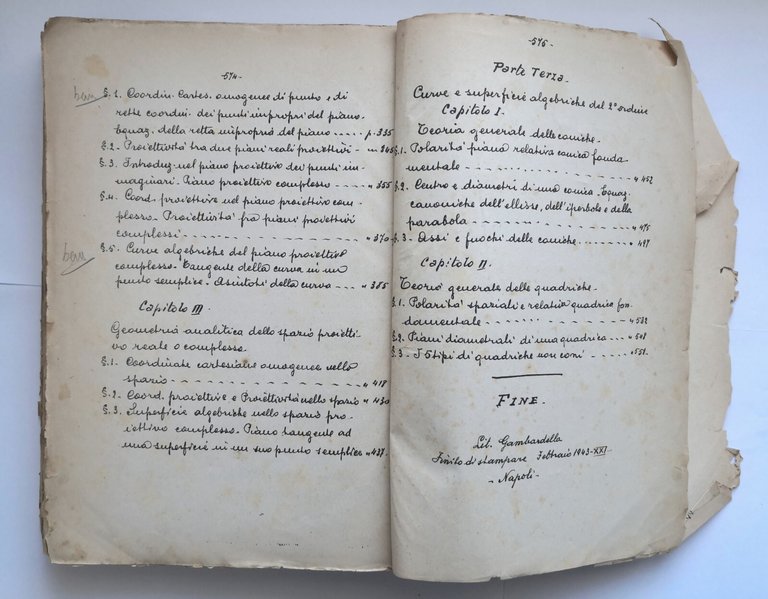 -574-
ben
§.1. Coordin. Cartes. omogenee di punto e di
rette coordin. dei punti impropri del piano.
Equaz. della retta impropria del piano ---- p. 335
§.2. Proiettività tra due piani reali proiettivi - " 345
§.3. Introduz. nel piano proiettivo dei punti im-
maginari. Piano proiettivo complesso ----- " 355
§.4. Coord. proiettive nel piano proiettivo com-
plesso. Proiettività fra piani proiettivi
complessi --------------- " 370
ben
§.5. Curve algebriche del piano proiettivo
complesso. Tangente della curva in un
punto semplice. Asintoti della curva --- " 385
Capitolo III.
Geometria analitica dello spazio proietti-
vo reale o complesso.
§.1. Coordinate cartesiane omogenee nello
spazio -------------- " 418
§.2. Coord. proiettive e Proiettività nello spazio " 430
§.3. Superficie algebriche nello spazio pro-
iettivo complesso. Piano tangente ad
una superficie in un suo punto semplice " 437.
-575-
Parte Terza.
Curve e superficie algebriche del 2° ordine
Capitolo I.
Teoria generale delle coniche.
§.1. Polarità piana relativa conica fonda-
mentale - . . . . . . . . . . . . . " 452
§.2. Centro e diametri di una conica. Equaz.
canoniche dell'ellisse, dell'iperbole e della
parabola - - - - - - - - - - - " 475
§.3 - Assi e fuochi delle coniche. - - - - - - " 497
Capitolo II.
Teoria generale delle quadriche.
§.1. Polarità spaziali e relativa quadrica fon-
damentale - - - - - - - - - - - - - " 532
§.2. Piani diametrali di una quadrica - - - " 548
§.3 - I 5 tipi di quadriche non coni - - - - - " 551.
FINE.
Lit. Gambardella
Finito di stampare Febbraio 1943-XXI
- Napoli -